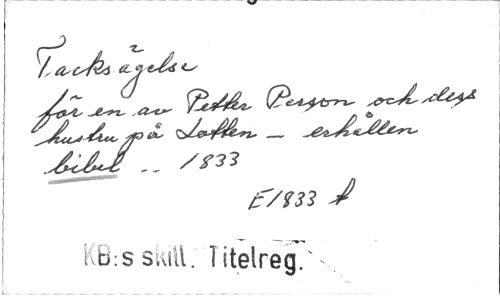 Tacksägelse
för en av Petter Person och dess
hustru på Lotten - erhållen
bibel .. 1833
E1833 f
KB:s skill. Titelreg.